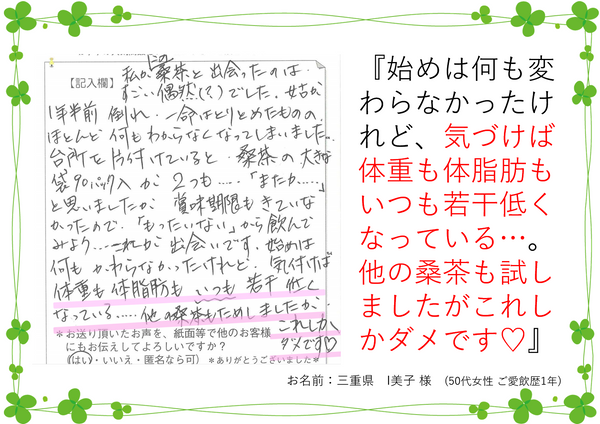 【記入欄】 私がこの桑茶と出会ったのは、
すごい偶然(?)でした。女古が
1年半前 倒れ、一命はとりとめたものの、
ほとんど何もわからなくなってしまいました。
台所を片付けていると、桑茶の大きな
袋90パック入が 2つも……、「またか……」
と思いましたが、賞味期限もきていな
かったので、「もったいない」から飲んで
みよう…これが出会いです。始めは
何もかわらなかったけれど、気付けば
体重も体脂肪も いつも若干低く
なっている……他の桑茶もためしましたが、
これしか
ダメです♡
＊お送り頂いたお声を、紙面等で他のお客様
にもお伝えしてよろしいですか？
(はい・いいえ・匿名なら可) ＊ありがとうございました＊
『始めは何も変
わらなかったけ
れど、気づけば
体重も体脂肪も
いつも若干低く
なっている…。
他の桑茶も試し
ましたがこれし
かダメです♡』
お名前：三重県　I美子 様　(50代女性 ご愛飲歴1年)